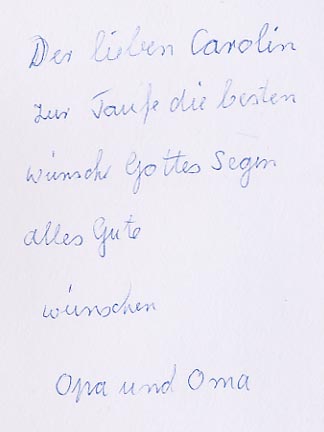 Der lieben Carolin
zur Taufe die besten
wünsche Gottes Segen
alles Gute
wünschen
Opa und Oma